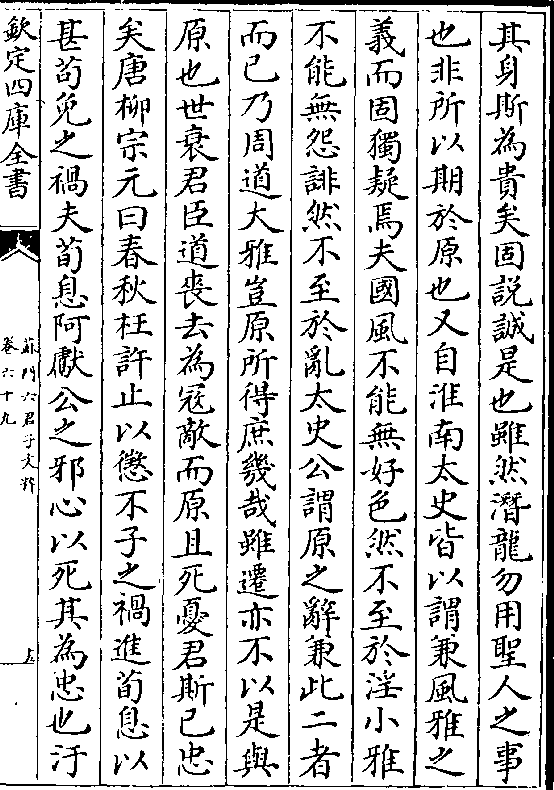 其身斯為貴矣固説誠是也雖然潛龍勿用聖人之事
也非所以期於原也又自淮南太史皆以謂兼風雅之
義而固獨疑焉夫國風不能無好色然不至於淫小雅
不能無怨誹然不至於亂太史公謂原之辭兼此二者
而已乃周道大雅豈原所得庶幾哉雖遷亦不以是與
原也世衰君臣道喪去為冦敵而原且死憂君斯已忠
矣唐柳宗元曰春秋枉許止以懲不子之禍進荀息以
甚苟免之禍夫荀息阿獻公之邪心以死其為忠也汙
欽定四庫全書
蘇門六君子文粹
卷六十九
五